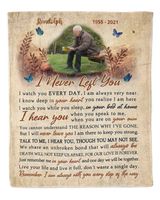 Randolph 1955 - 2021
I Never Left You
I watch you EVERY DAY, I am always very near.
I know deep in your heart you realize I am here
I watch you while you sleep, on your bill at home
I hear you when you speak to me,
when you are on your own
You cannot understand THE REASON WHY I'VE GONE.
But I will never leave you I am there to keep you strong
TALK TO ME, I HEAR YOU, THOUGH YOU MAY NOT SEE.
We share an unbroken bond that will always be
DEATH WILL NOT KEEP US APART, FOR OUR LOVE IS FOREVER
Just remember me in your heart and one day we will be together
Live your life and live it with free, don't waste a single day.
Remember: I am always with you every step of the way